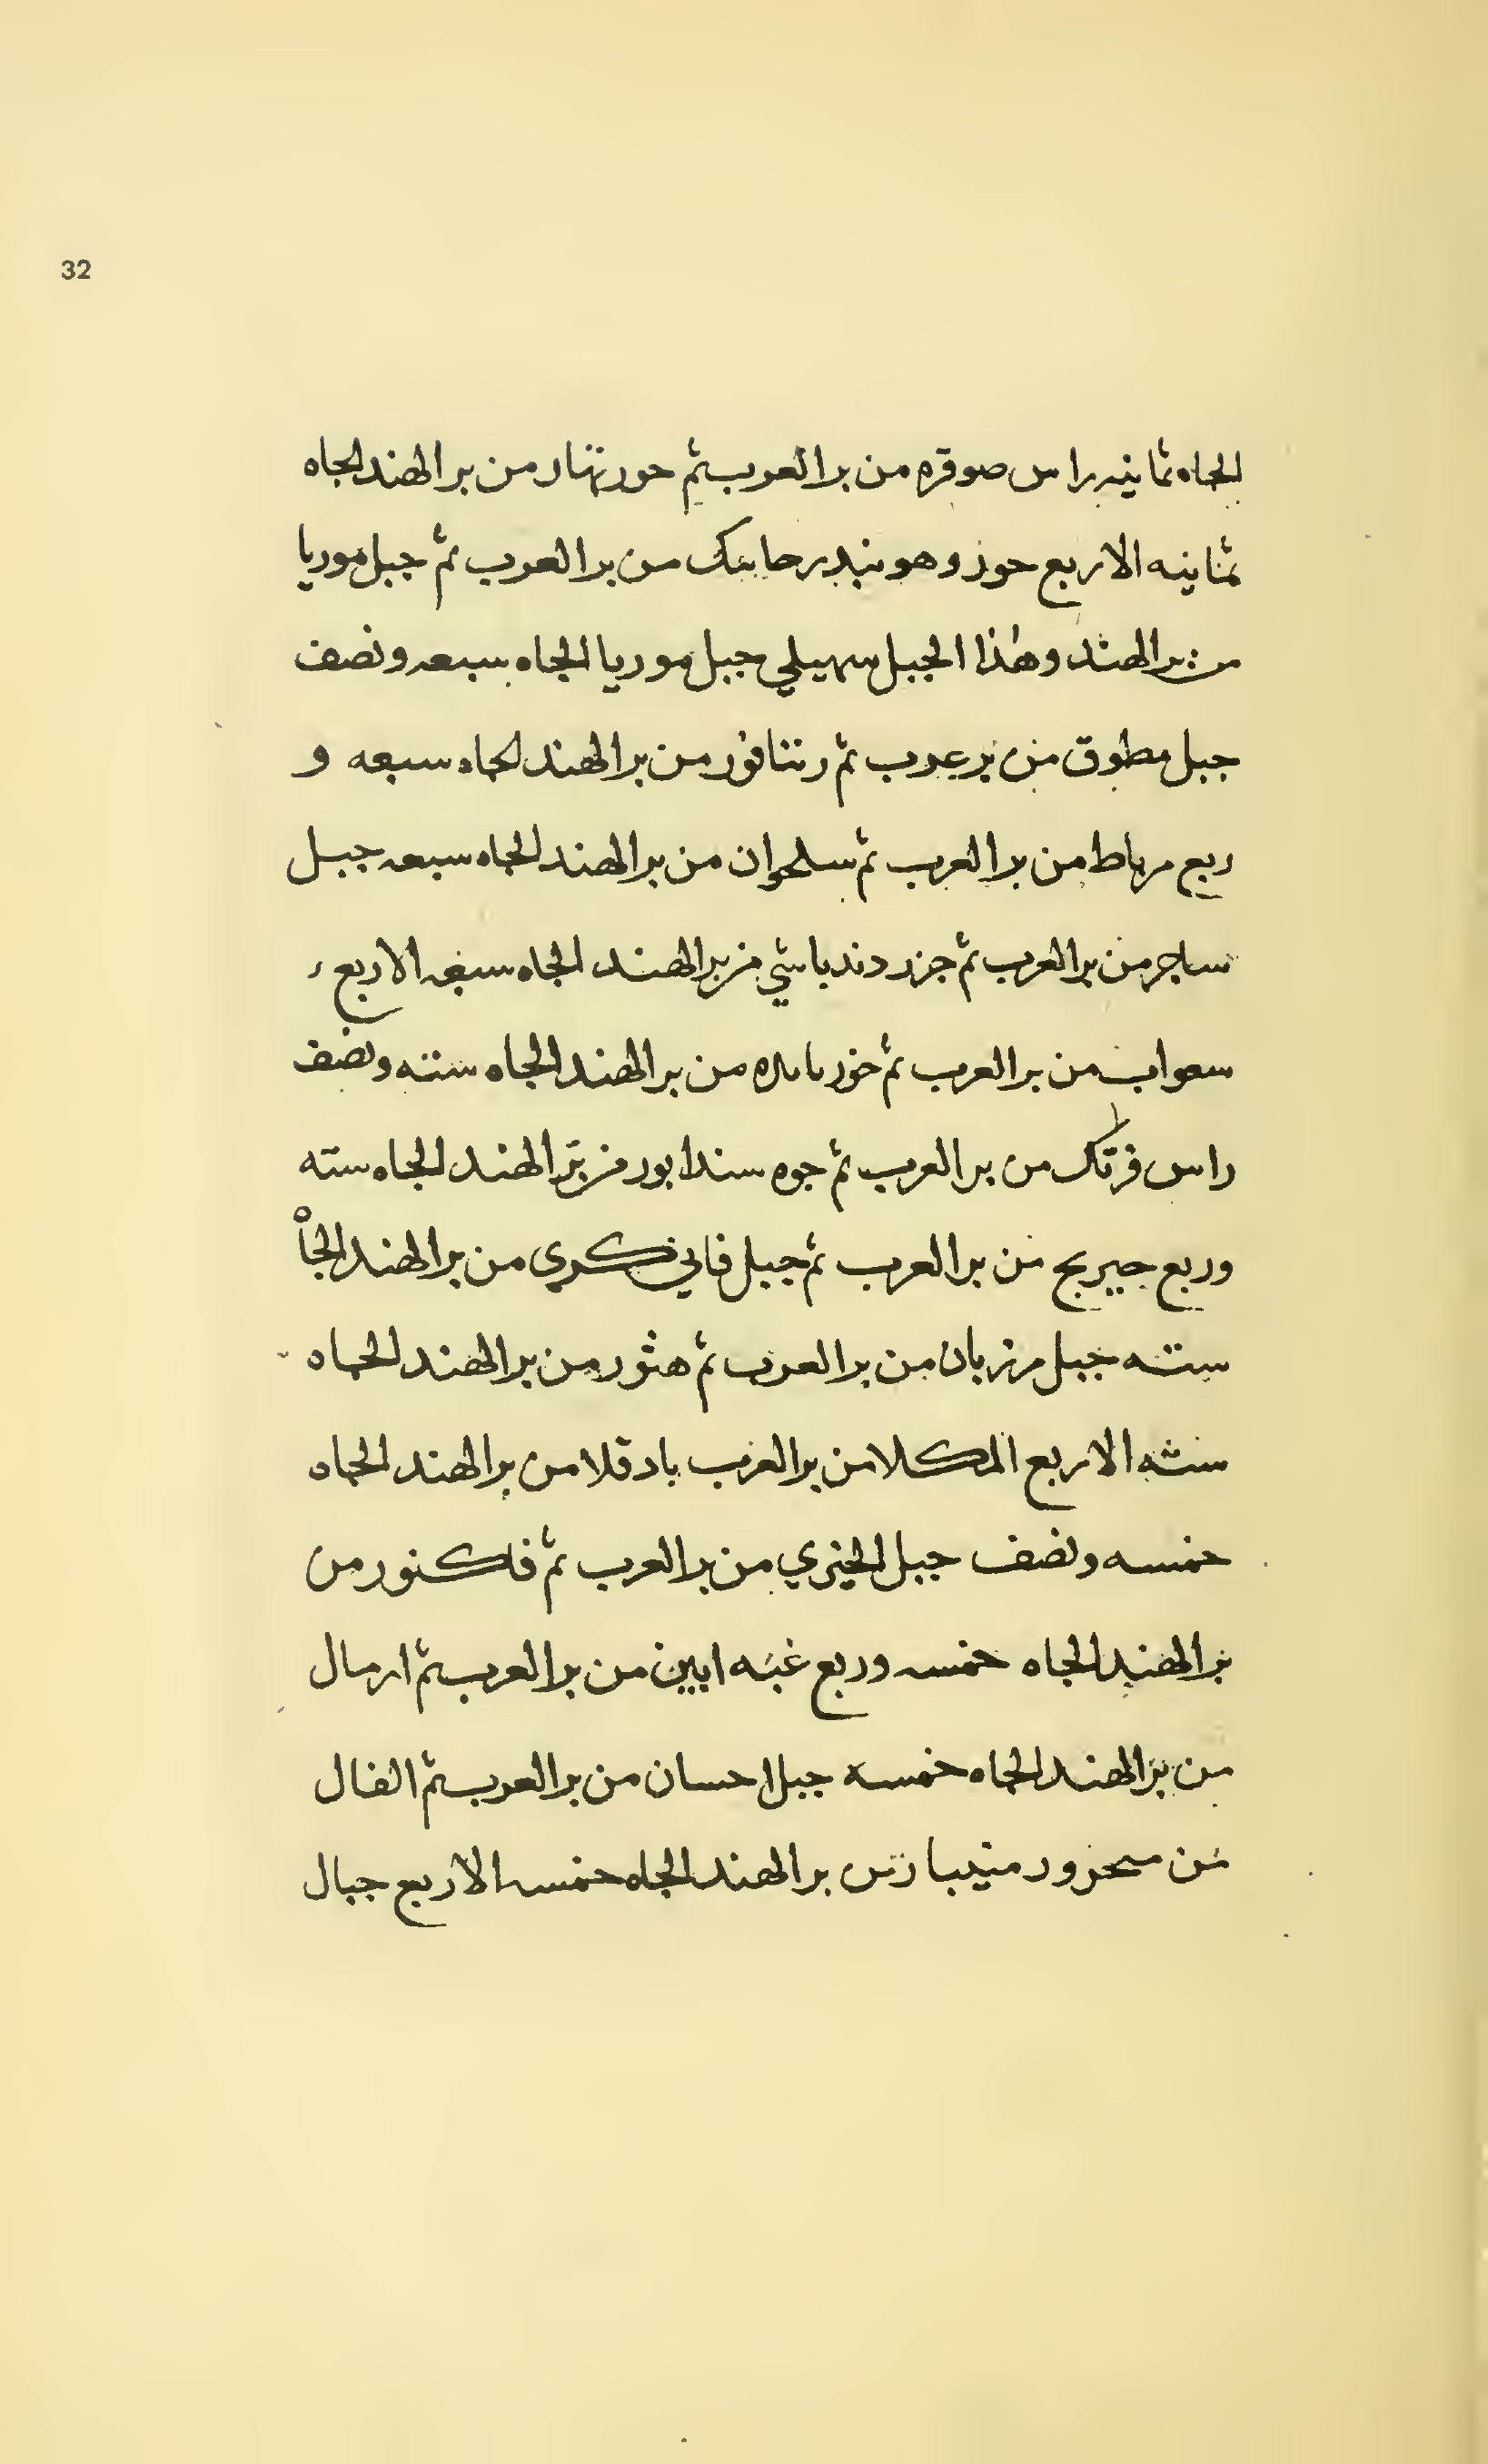 32
الجاه ثمانيه راس صوقره من بر العرب ثم خور نهار من بر الهند الجاه
ثمانيه الا ربع حوز وهو بندر حاسك من بر العرب ثم جبل موريا
من بر الهند وهذا الجبل سهيلي جبل موريا الجاه سبعه ونصف
جبل مطوق من بر عرب ثم رتنافور من بر الهند الجاه سبعه و
ربع مرباط من بر العرب ثم سلحوان من بر الهند الجاه سبعه جبل
ساجر من بر العرب ثم جزر دندباشي من بر الهند الجاه سبعه الا ربع
من بر العرب ثم خور من بر الهند الجاه سته ونصف
راس فرتك من بر العرب ثم جوه سندابور من بر الهند الجاه سته
وربع جيريج من بر العرب ثم جبل فاني كري من بر الهند الجاه
سته جبل مرزبان من بر العرب ثم هنور من بر الهند الجاه
سته الا ربع المكلا من بر العرب بادقلا من بر الهند الجاه
خمسه ونصف جبل الخيري من بر العرب ثم فاكنور من
بر الهند الجاه خمسه وربع غبه ابين من بر العرب ثم ارمال
من بر الهند الجاه خمسه جبل احسان من بر العرب ثم الفال
من بر الهند الجاه خمسه الا ربع جبال